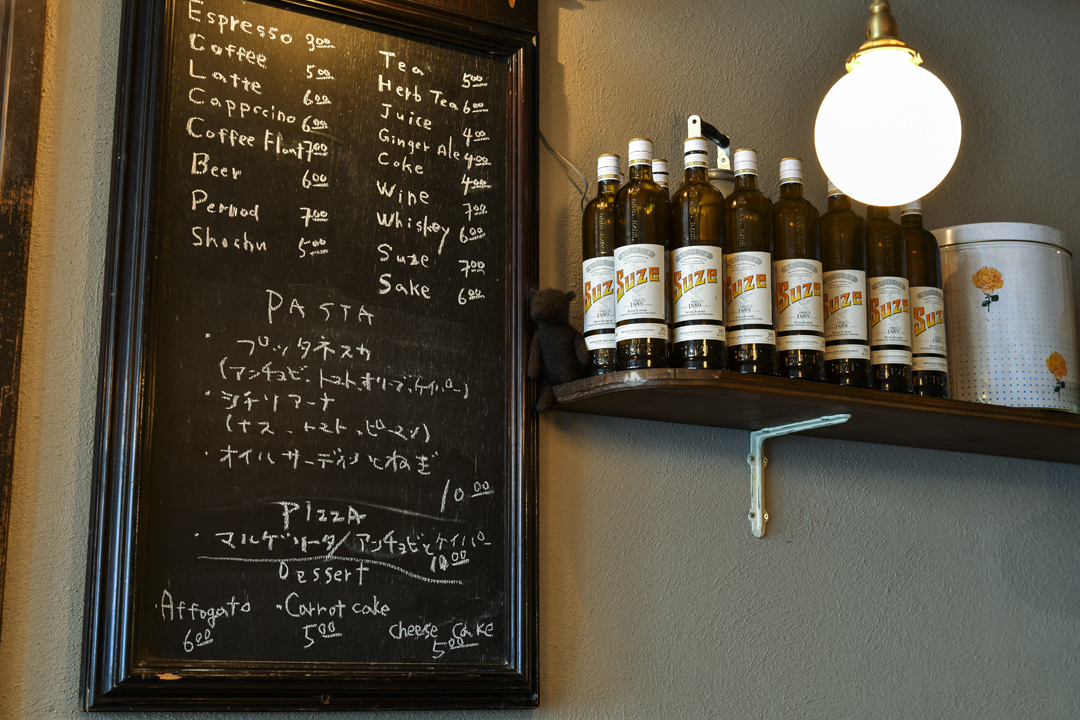 Espresso 300
Coffee 500
Latte 600
Cappccino 600
Coffee Float 700
Beer 600
Pernod 700
Shochu 500
Tea 500
Herb Tea 600
Juice 400
Ginger Ale 400
Coke 400
Wine 700
Whiskey 600
Suze 700
Sake 600
PASTA
・プッタネスカ
(アンチョビ、トマト、オリーブ、ケイパー)
・シチリアーナ
(ナス、トマト、ピーマン)
・オイルサーディンとねぎ
1000
PIzzA
・マルゲリータ/アンチョビとケイパー
1000
Dessert
・Affogato 600
・Carrot cake 500
cheese cake 500
Suze
1889
Suze
1889
Suze
1889
Suze
1889
Suze
1889
Suze
1889
Suze
Suze